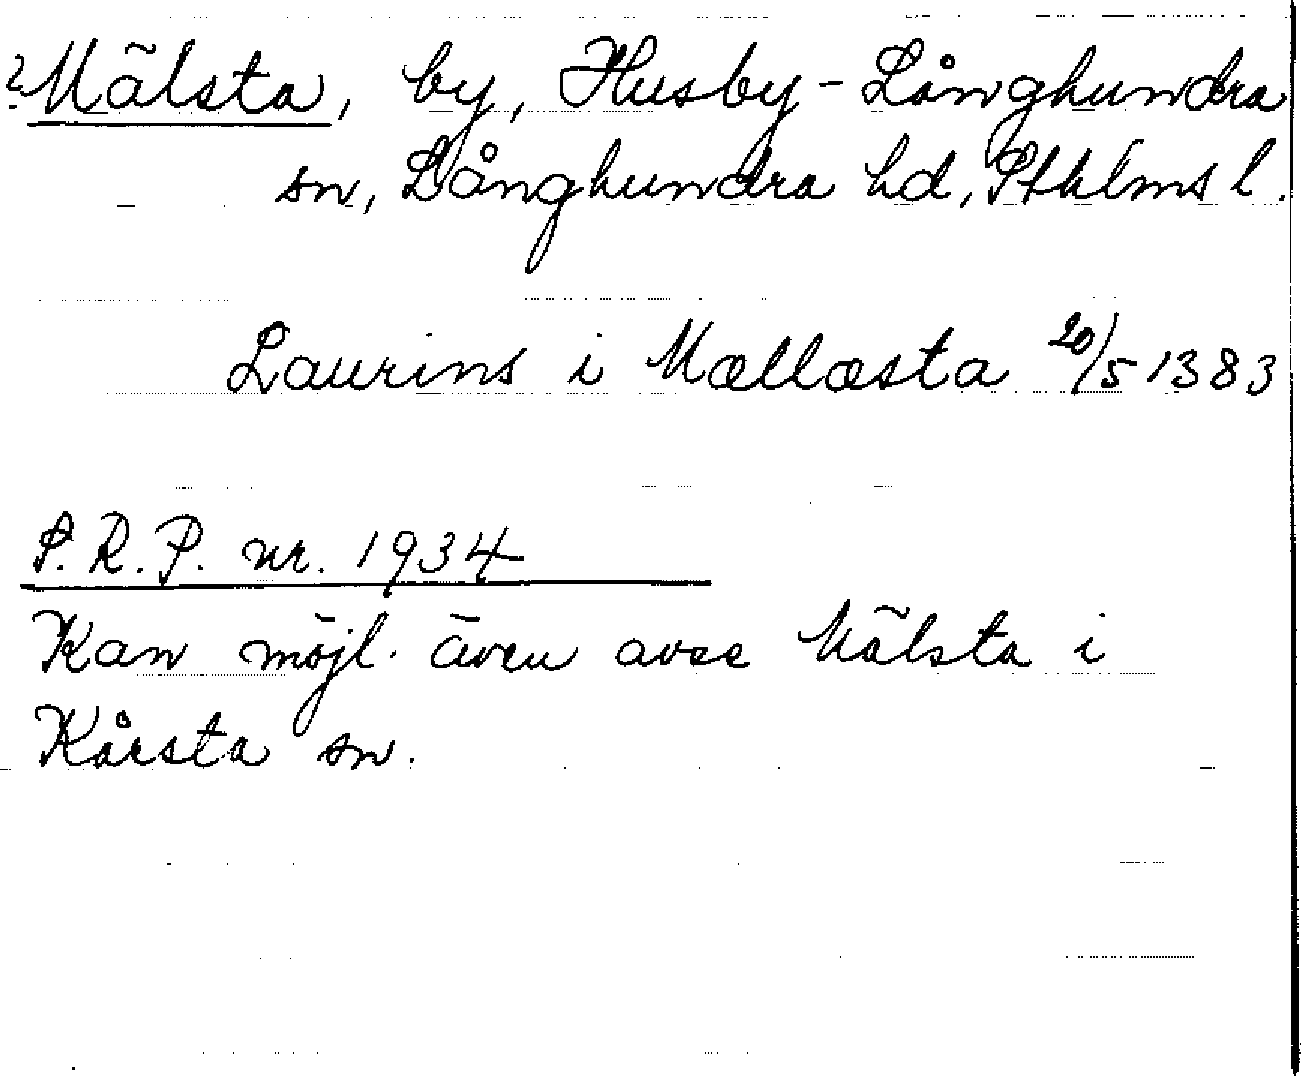 ? Mälsta, by, Husby-Långhundra
sn, Långhundra hd, Sthlms l.
Laurins i Mællæsta 20/5 1383
S.R.P. nr. 1934
Kan möjl. även avse Mälsta i
Kårsta sn.